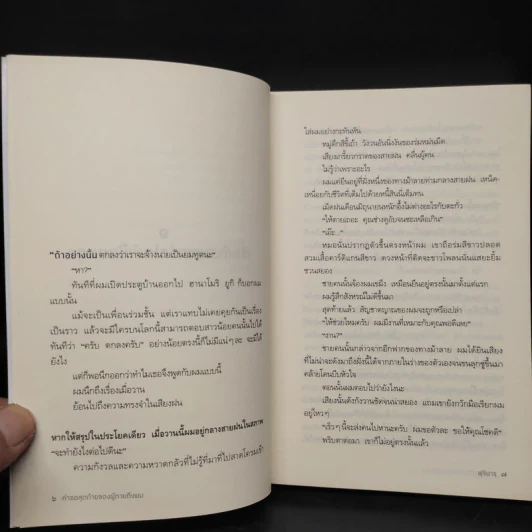 "ถ้าอย่างนั้น ตกลงว่าเราจะจ้างนายเป็นยมทูตนะ"
"หา?"
ทันทีที่ผมเปิดประตูบ้านออกไป ฮานาโมริ ยูกิ ก็บอกผม
แบบนั้น
แม้จะเป็นเพื่อนร่วมชั้น แต่เราแทบไม่เคยคุยกันเป็นเรื่อง
เป็นราว แล้วจะมีใครบนโลกนี้สามารถตอบสาวน้อยคนนั้นไปได้
ทันทีว่า "ครับ ตกลงครับ" อย่างน้อยตรงนี้ก็ไม่มีแน่ๆ ละ จะมีได้
ยังไง
แต่ก็พอนึกออกว่าทำไมเธอจึงพูดกับผมแบบนี้
ผมนึกถึงเรื่องเมื่อวาน
ย้อนไปถึงความทรงจำในเสียงฝน
หากให้สรุปในประโยคเดียว เมื่อวานนี้ผมอยู่กลางสายฝนในสภาพ
"จะทำยังไงต่อไปดีนะ"
ความกังวลและความหวาดกลัวที่ไม่รู้ที่มาที่ไปสาดโครมเข้า
๖ คำขอสุดท้ายของผู้วายถึงผม
ใส่ผมอย่างกะทันหัน
หมู่ตึกสีขี้เถ้า วังวนอันนิ่งงันของร่มหม่นมืด
เสียงเกรี้ยวกราดของสายฝน คลื่นผู้คน
ไม่รู้ว่าเพราะอะไร
ผมแค่ยืนอยู่ที่ฝั่งหนึ่งของทางม้าลายท่ามกลางสายฝน เหน็ด
เหนื่อยกับชีวิตที่เต็มไปด้วยหนี้สินเต็มทน
เม็ดฝนเดือนมิถุนายนหนักอึ้งไม่ต่างอะไรกับตะกั่ว
"ให้ตายเถอะ คุณช่างดูอับจนซะเหลือเกิน"
"เอ๊ะ..."
หมอนั่นปรากฏตัวขึ้นตรงหน้าผม เขาถือร่มสีขาวปลอด
สวมเสื้อคาร์ดิแกนสีขาว ดวงหน้าที่ติดจะขาวโพลนนั้นแสยะยิ้ม
ชวนสยอง
ชายคนนั้นจ้องผมเขม็ง เหมือนยืนอยู่ตรงนั้นมาตั้งแต่แรก
ผมรู้สึกสังหรณ์ไม่ดีขึ้นมา
สุดท้ายแล้ว สัญชาตญาณของผมจะถูกหรือเปล่า
"ให้ช่วยไหมครับ ผมมีงานที่เหมาะกับคุณพอดีเลย"
"งาน?"
ชายคนนั้นกล่าวจากอีกฟากของทางม้าลาย ผมได้ยินเสียง
ที่ไม่น่าจะดังมาถึงฝั่งนี้ได้จากภายในร่างของตัวเองจนขนลุกซู่ขึ้นมา
คล้ายโดนบีบหัวใจ
ตอนนั้นผมตอบไปว่ายังไงนะ
เสียงนั้นดังกังวานชัดจนน่าสยอง แถมเขายังกวักมือเรียกผม
อยู่ไหวๆ
"เร็วๆ นี้จะส่งคนไปหานะครับ ผมขอตัวละ ขอให้คุณโชคดี"
พริบตาต่อมา เขาก็ไม่อยู่ตรงนั้นแล้ว
๗